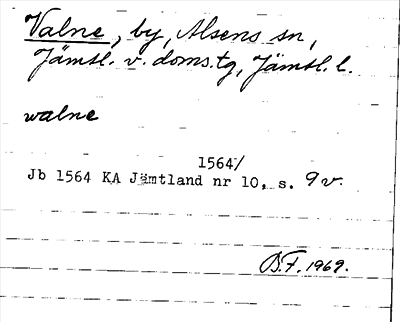 Valne, by, Alsens sn,
Jämtl. v. doms.tg, Jämtl. l.
walne
1564/
Jb 1564 KA Jämtland nr 10, s. 9 v.
B.F. 1969.